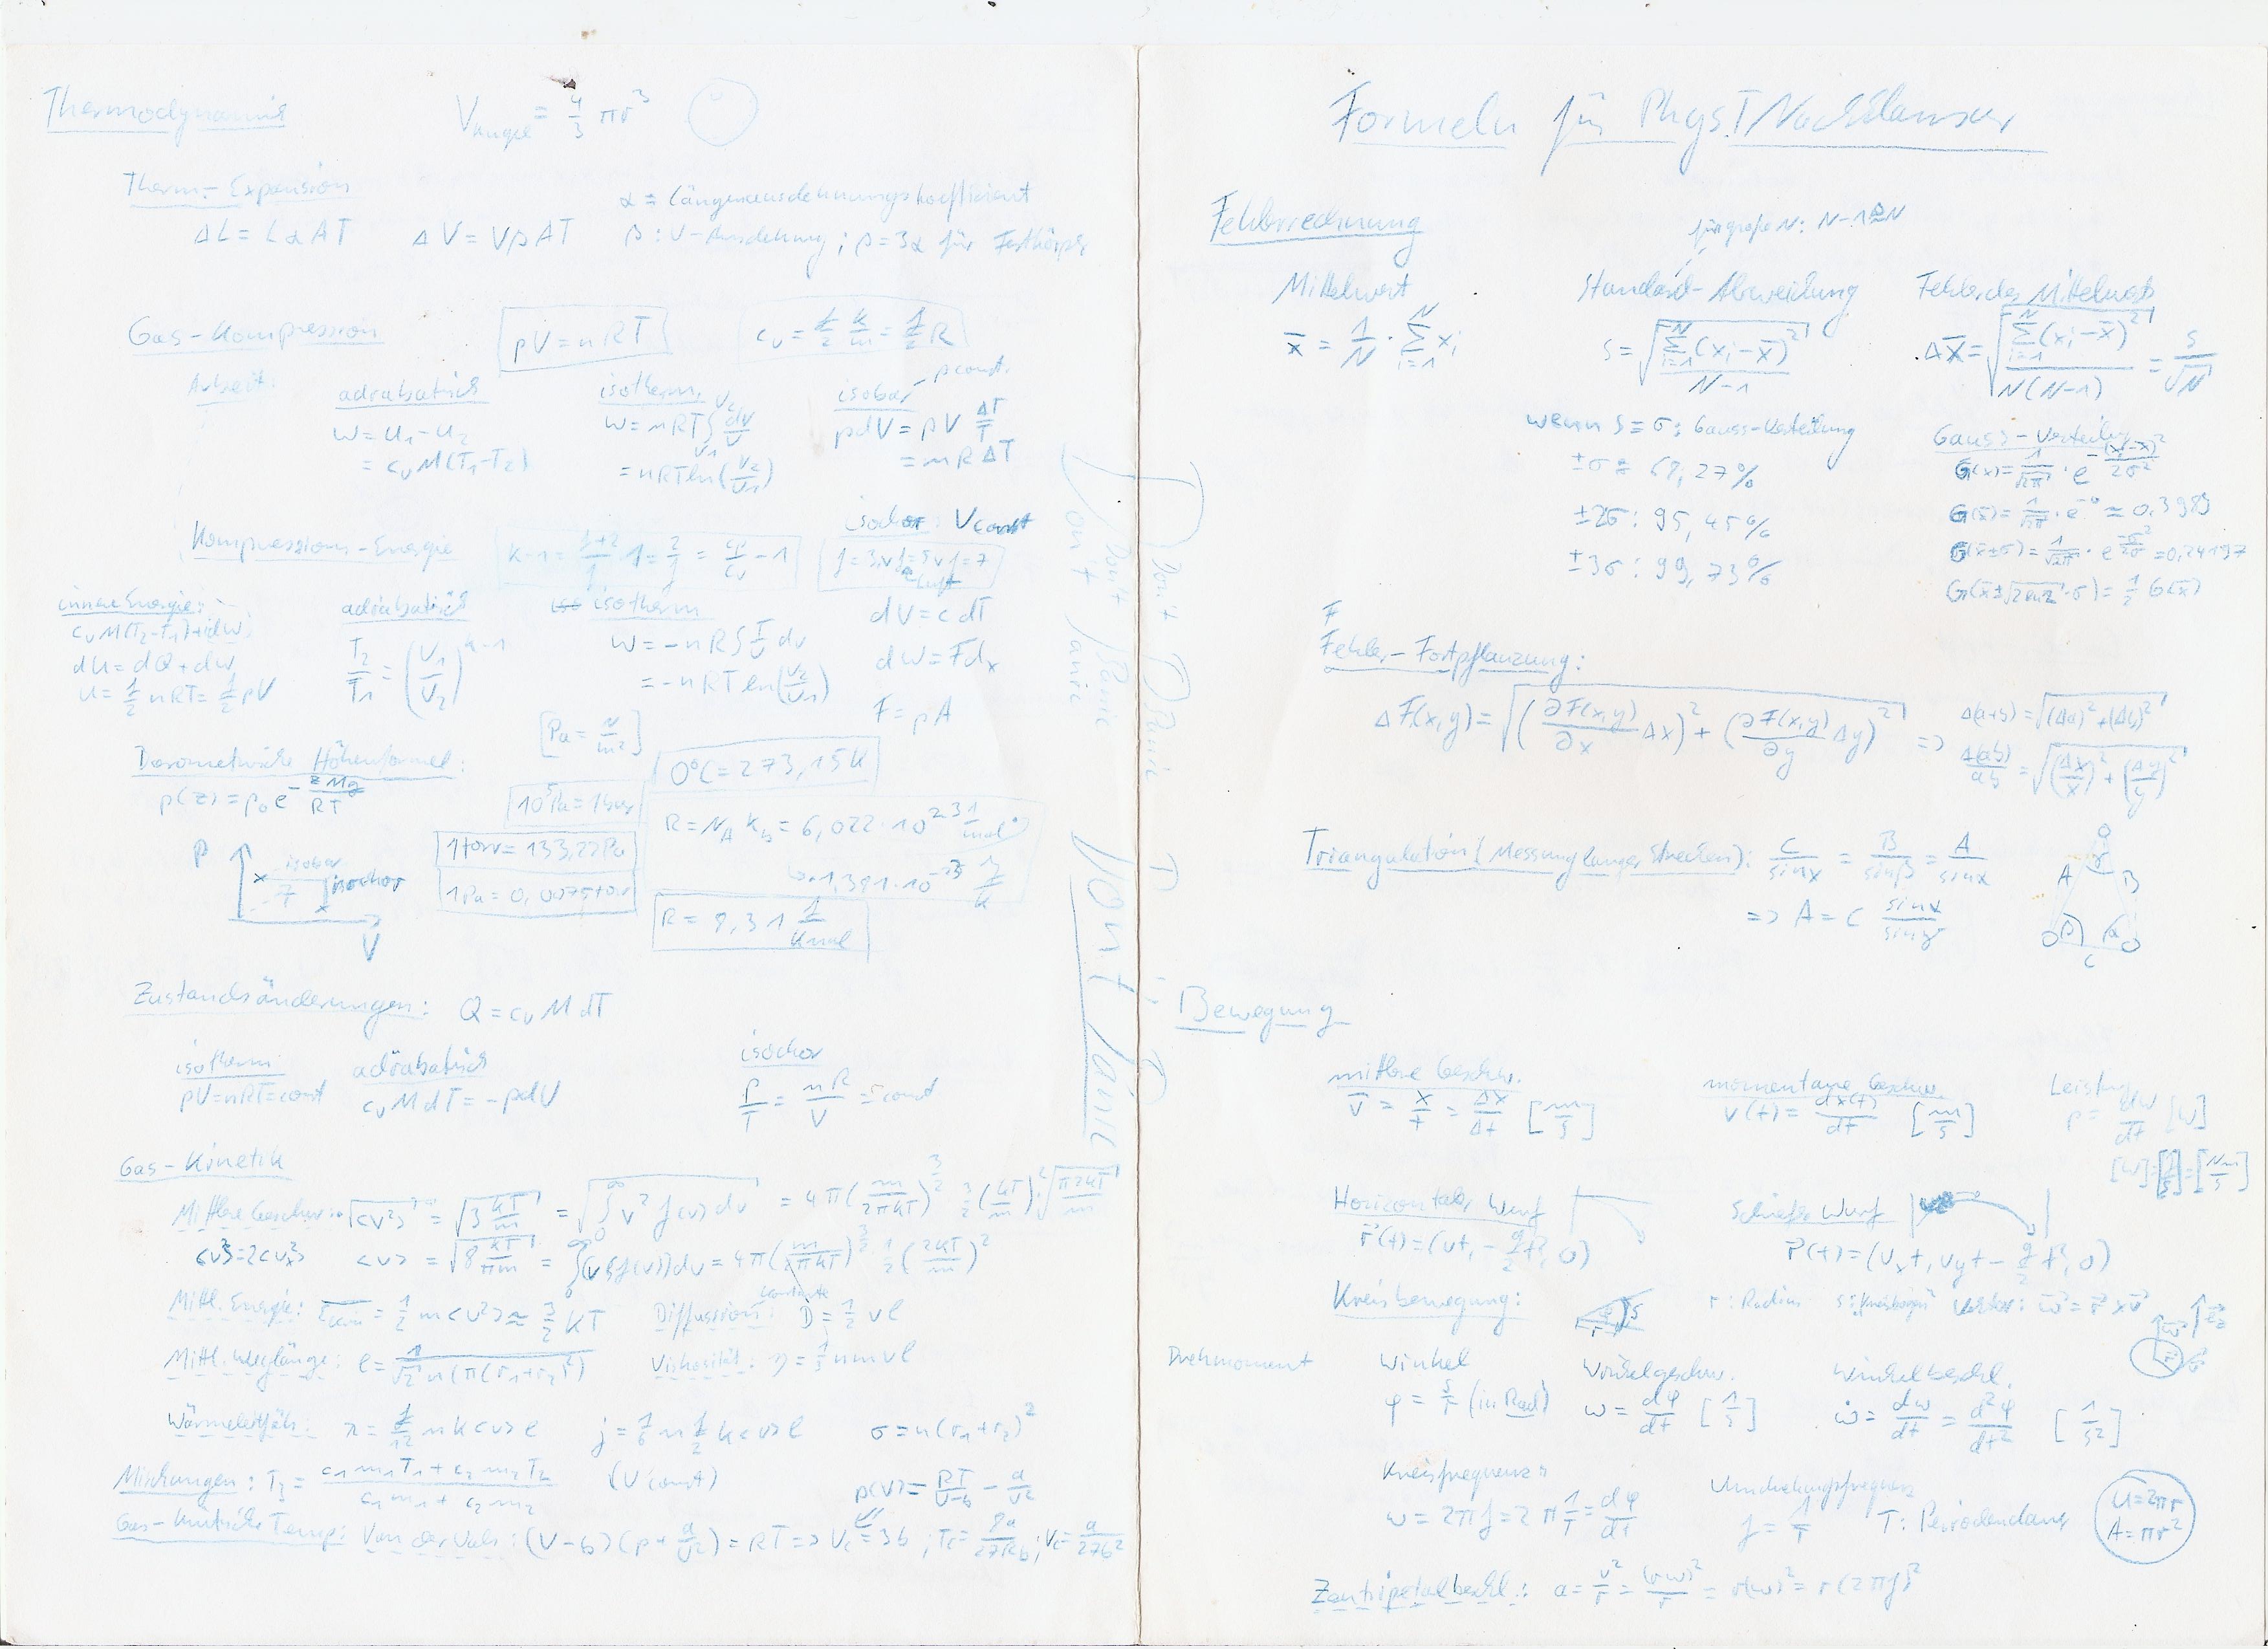 Thermodynamik
V_Kugel = 4/3 πr³
Therm.-Expansion
α = Längenausdehnungskoeffizient
ΔL = LαΔT ΔV = VβΔT β: V-Ausdehnung; β=3α für Festkörper
Gas-Kompression
pV = nRT
c_V = f/2 k/m = f/2 R
Arbeit:
adiabatisch
W = U₁-U₂
= c_V M(T₁-T₂)
isotherm
W = nRT ∫_{V₁}^{V₂} dV/V
= nRT ln(V₂/V₁)
isobar - p const.
pdV = pV ΔT/T
= nRΔT
isochor: V const
Kompressions-Energie
κ-1 = f+2/f - 1 = 2/f = cp/cv - 1
f=3 v f=5 v f=7
Luft
innere Energie:
c_V M(T₂-T₁)+dW
dU = dQ + dW
U = f/2 nRT = f/2 pV
adiabatisch
T₂/T₁ = (V₁/V₂)^{κ-1}
isotherm
W = -nR∫ T/V dV
= -nRT ln(V₂/V₁)
dV = c dT
dW = Fdx
F = pA
[Pa = N/m²]
Barometrische Höhenformel:
p(z) = p₀e^{-zMg/RT}
0°C = 273,15K
10⁵Pa = 1bar
1torr = 133,22Pa
1Pa = 0,0075torr
R = N_A k_B = 6,022·10²³ 1/mol ·
↳ ·1,381·10⁻²³ J/K
R = 8,31 J/Kmol
P
isobar
T
isochor
V
Zustandsänderungen: Q = c_V M dT
isotherm
pV = nRT = const
adiabatisch
c_V M dT = -pdV
isochor
P/T = nR/V = const
Gas-Kinetik
Mittlere Geschw.: √<v²> = √(3 kT/m) = √(∫₀^∞ v² f(v) dv) = 4π(m/2πkT)^{3/2} 3/2 (kT/m)² √(π2kT/m)
<v> = √(8 kT/πm) = ∫₀^∞ (v f(v))dv = 4π(m/2πkT)^{3/2} 1/2 (2kT/m)²
Mittl. Energie: E_kin = 1/2 m<v²> ≈ 3/2 kT
Konstante
Diffusions: D = 1/2 vl
Mittl. Weglänge: l = 1/√2 n(π(r₁+r₂)²)
Viskosität: η = 1/3 nmvl
Wärmeleitfäh.: λ = f/12 nk<v>l j = 1/6 n f/2 k<v>l σ = π(r₁+r₂)²
Mischungen: T₃ = c₁m₁T₁ + c₂m₂T₂ / c₁m₁ + c₂m₂ (V const)
p(V) = RT/V-b - a/V²
Gas-kritische Temp: Van der Vals: (V-b)(p + a/V²) = RT => V_c = 3b ; T_c = 8a/27Rb ; V_c = a/27b²
Don't Panic
Don't Panic
Don't Panic
Don't Panic
Formeln für Phys.I Nachklausur
Fehlerrechnung
für große N: N-1≅N
Mittelwert
x̄ = 1/N · Σ_{i=1}^{N} xᵢ
Standard-Abweichung
s = √(Σ_{i=1}^{N}(xᵢ-x̄)² / N-1)
Fehler des Mittelwerts
Δx̄ = √(Σ_{i=1}^{N}(xᵢ-x̄)² / N(N-1)) = s/√N
wenn s = σ: Gauss-Verteilung
±σ ≙ 68,27%
±2σ: 95,45%
±3σ: 99,73%
Gauss-Verteilung
G(x) = 1/√2π · e^{-(x-x̄)²/2σ²}
G(x̄) = 1/√2π · e⁻⁰ ≈ 0,3989
G(x̄±σ) = 1/√2π · e^{-σ²/2σ²} = 0,24197
G(x̄±√2ln2·σ) = 1/2 G(x̄)
F
Fehler-Fortpflanzung:
ΔF(x,y) = √((∂F(x,y)/∂x Δx)² + (∂F(x,y)/∂y Δy)²) =>
Δ(a+b) = √((Δa)² + (Δb)²)
Δ(ab)/ab = √((Δx/x)² + (Δy/y)²)
Triangulation (Messung langer Strecken): C/sinγ = B/sinβ = A/sinα
=> A = C sinα/sinγ
γ
A B
β α
C
Bewegung
mittlere Geschw.
v̄ = x/t = Δx/Δt [m/s]
momentane Geschw.
v(t) = dx(t)/dt [m/s]
Leistung
P = dW/dt [W]
[W]=[J/s]=[Nm/s]
Horizontaler Wurf
r⃗(t) = (vt, -g/2 t², 0)
Schiefer Wurf
r⃗(t) = (vₓt, v_y t - g/2 t², 0)
Kreisbewegung:
φ s
r
r: Radius s: Kreisbogen Vektor: ω⃗ = r⃗ x v⃗
Drehmoment
Winkel
φ = s/r (in Rad)
Winkelgeschw.
ω = dφ/dt [1/s]
Winkelbeschl.
ω̇ = dω/dt = d²φ/dt² [1/s²]
Kreisfrequenz
ω = 2πf = 2π 1/T = dφ/dt
Umdrehungsfrequenz
f = 1/T T: Periodendauer
U = 2πr
A = πr²
Zentripetalbeschl.: a = v²/r = (rω)²/r = r(ω)² = r(2πf)²